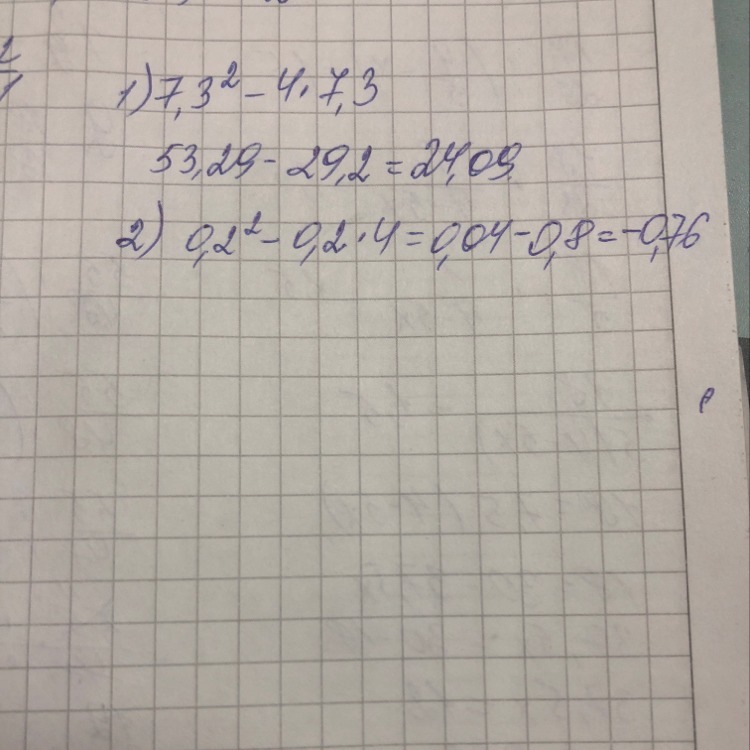 1) 7,3² - 4·7,3
53,29 - 29,2 = 24,09
2) 0,2² - 0,2·4 = 0,04 - 0,8 = -0,76